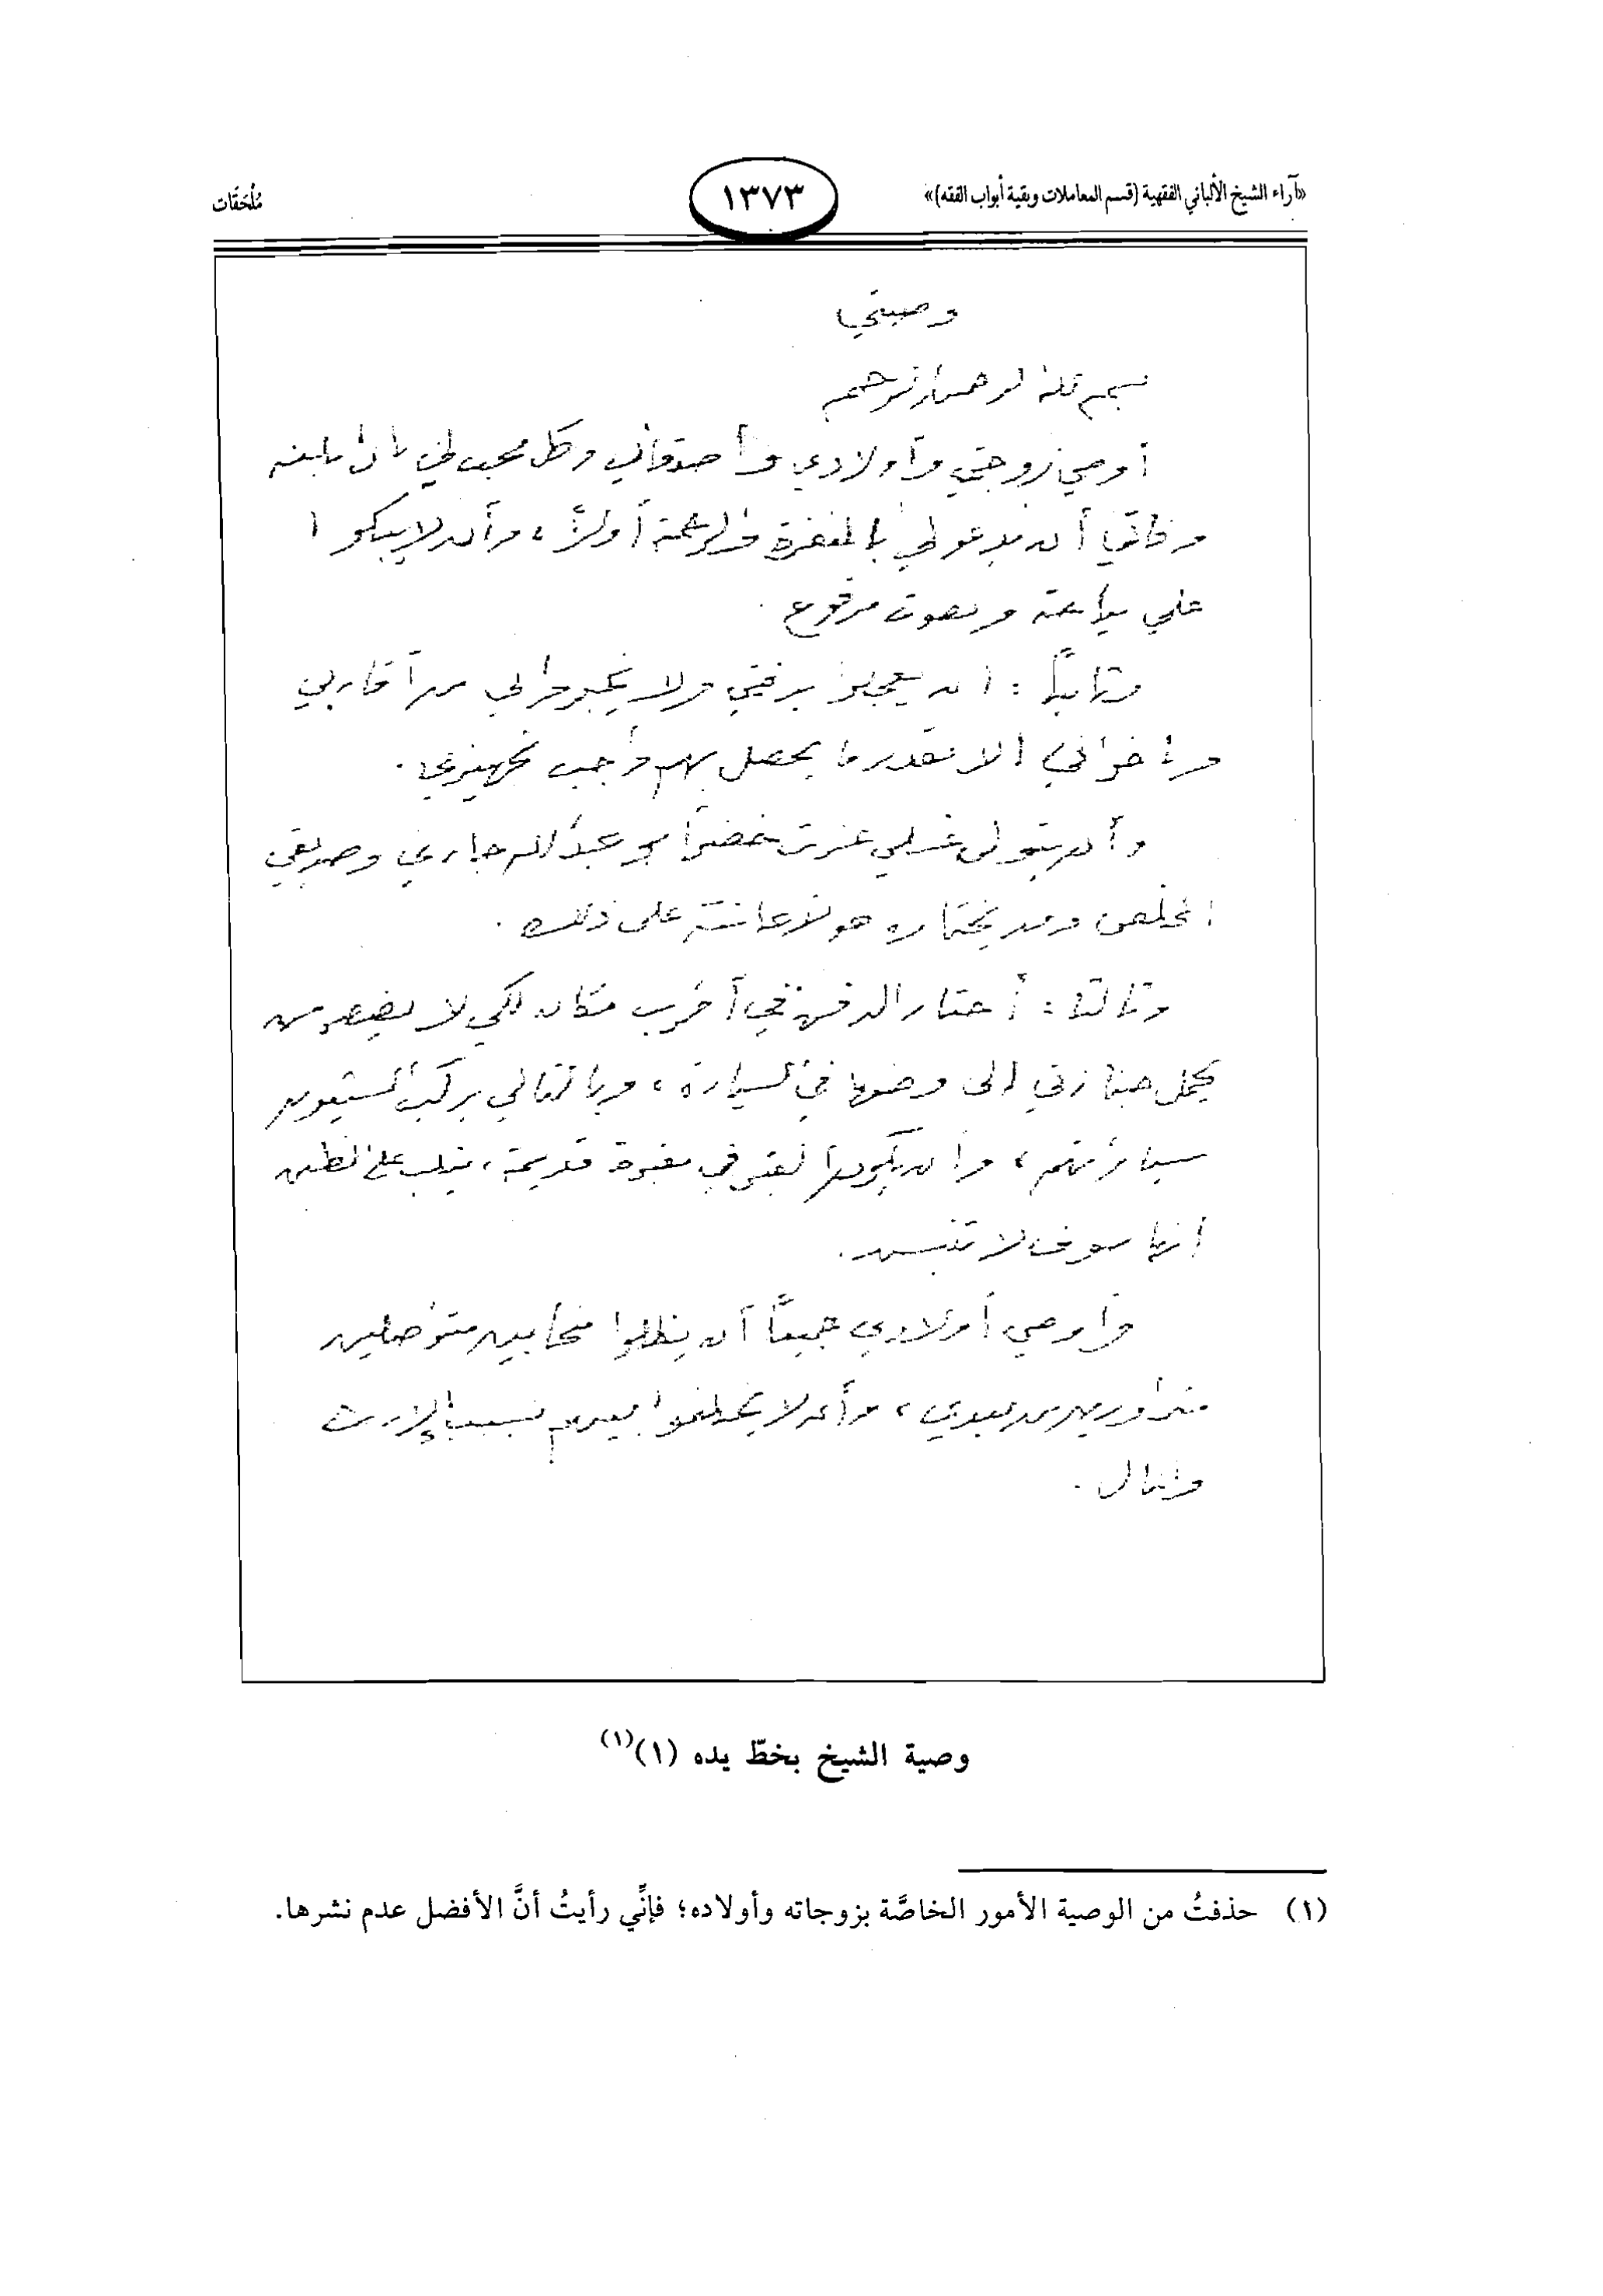 «آراء الشيخ الألباني الفقهية (قسم المعاملات وبقية أبواب الفقه)»
١٣٧٣
مُلْحَقَات
وصيتي
بسم الله الرحمن الرحيم
أوصي زوجتي وأولادي وأصدقائي وكل محب لي إذا بلغه
وفاتي أن يدعو لي بالمغفرة والرحمة أولاً، وأن لا يبكوا
علي نياحة وبصوت مرفوع.
وثانياً: أن يعجلوا بدفني ولا يخبروا لي من أقاربي
وإخواني إلا بقدر ما يحصل بهم واجب تجهيزي.
وأن يتولى غسلي عزت خضر أبو عبدالله جاري وصديقي
المخلص ومن يختاره هو لإعانته على ذلك.
وثالثا: أختار الدفن في أقرب مكان لكي لا يضطر من
يحمل جنازتي إلى وضعها في السيارة، وبالتالي يركب المشيعون
سياراتهم، وأن يكون القبر في مقبرة قديمة، يغلب على الظن
أنها سوف لا تنبش.
وأوصي أولادي جميعاً أن يظلوا متحابين متواصلين
متزاورين من بعدي، وأن لا يختلفوا بينهم بسبب الإرث
والمال.
وصية الشيخ بخطّ يده (١)(١)
(١) حذفتُ من الوصية الأمور الخاصَّة بزوجاته وأولاده؛ فإنِّي رأيتُ أنَّ الأفضل عدم نشرها.